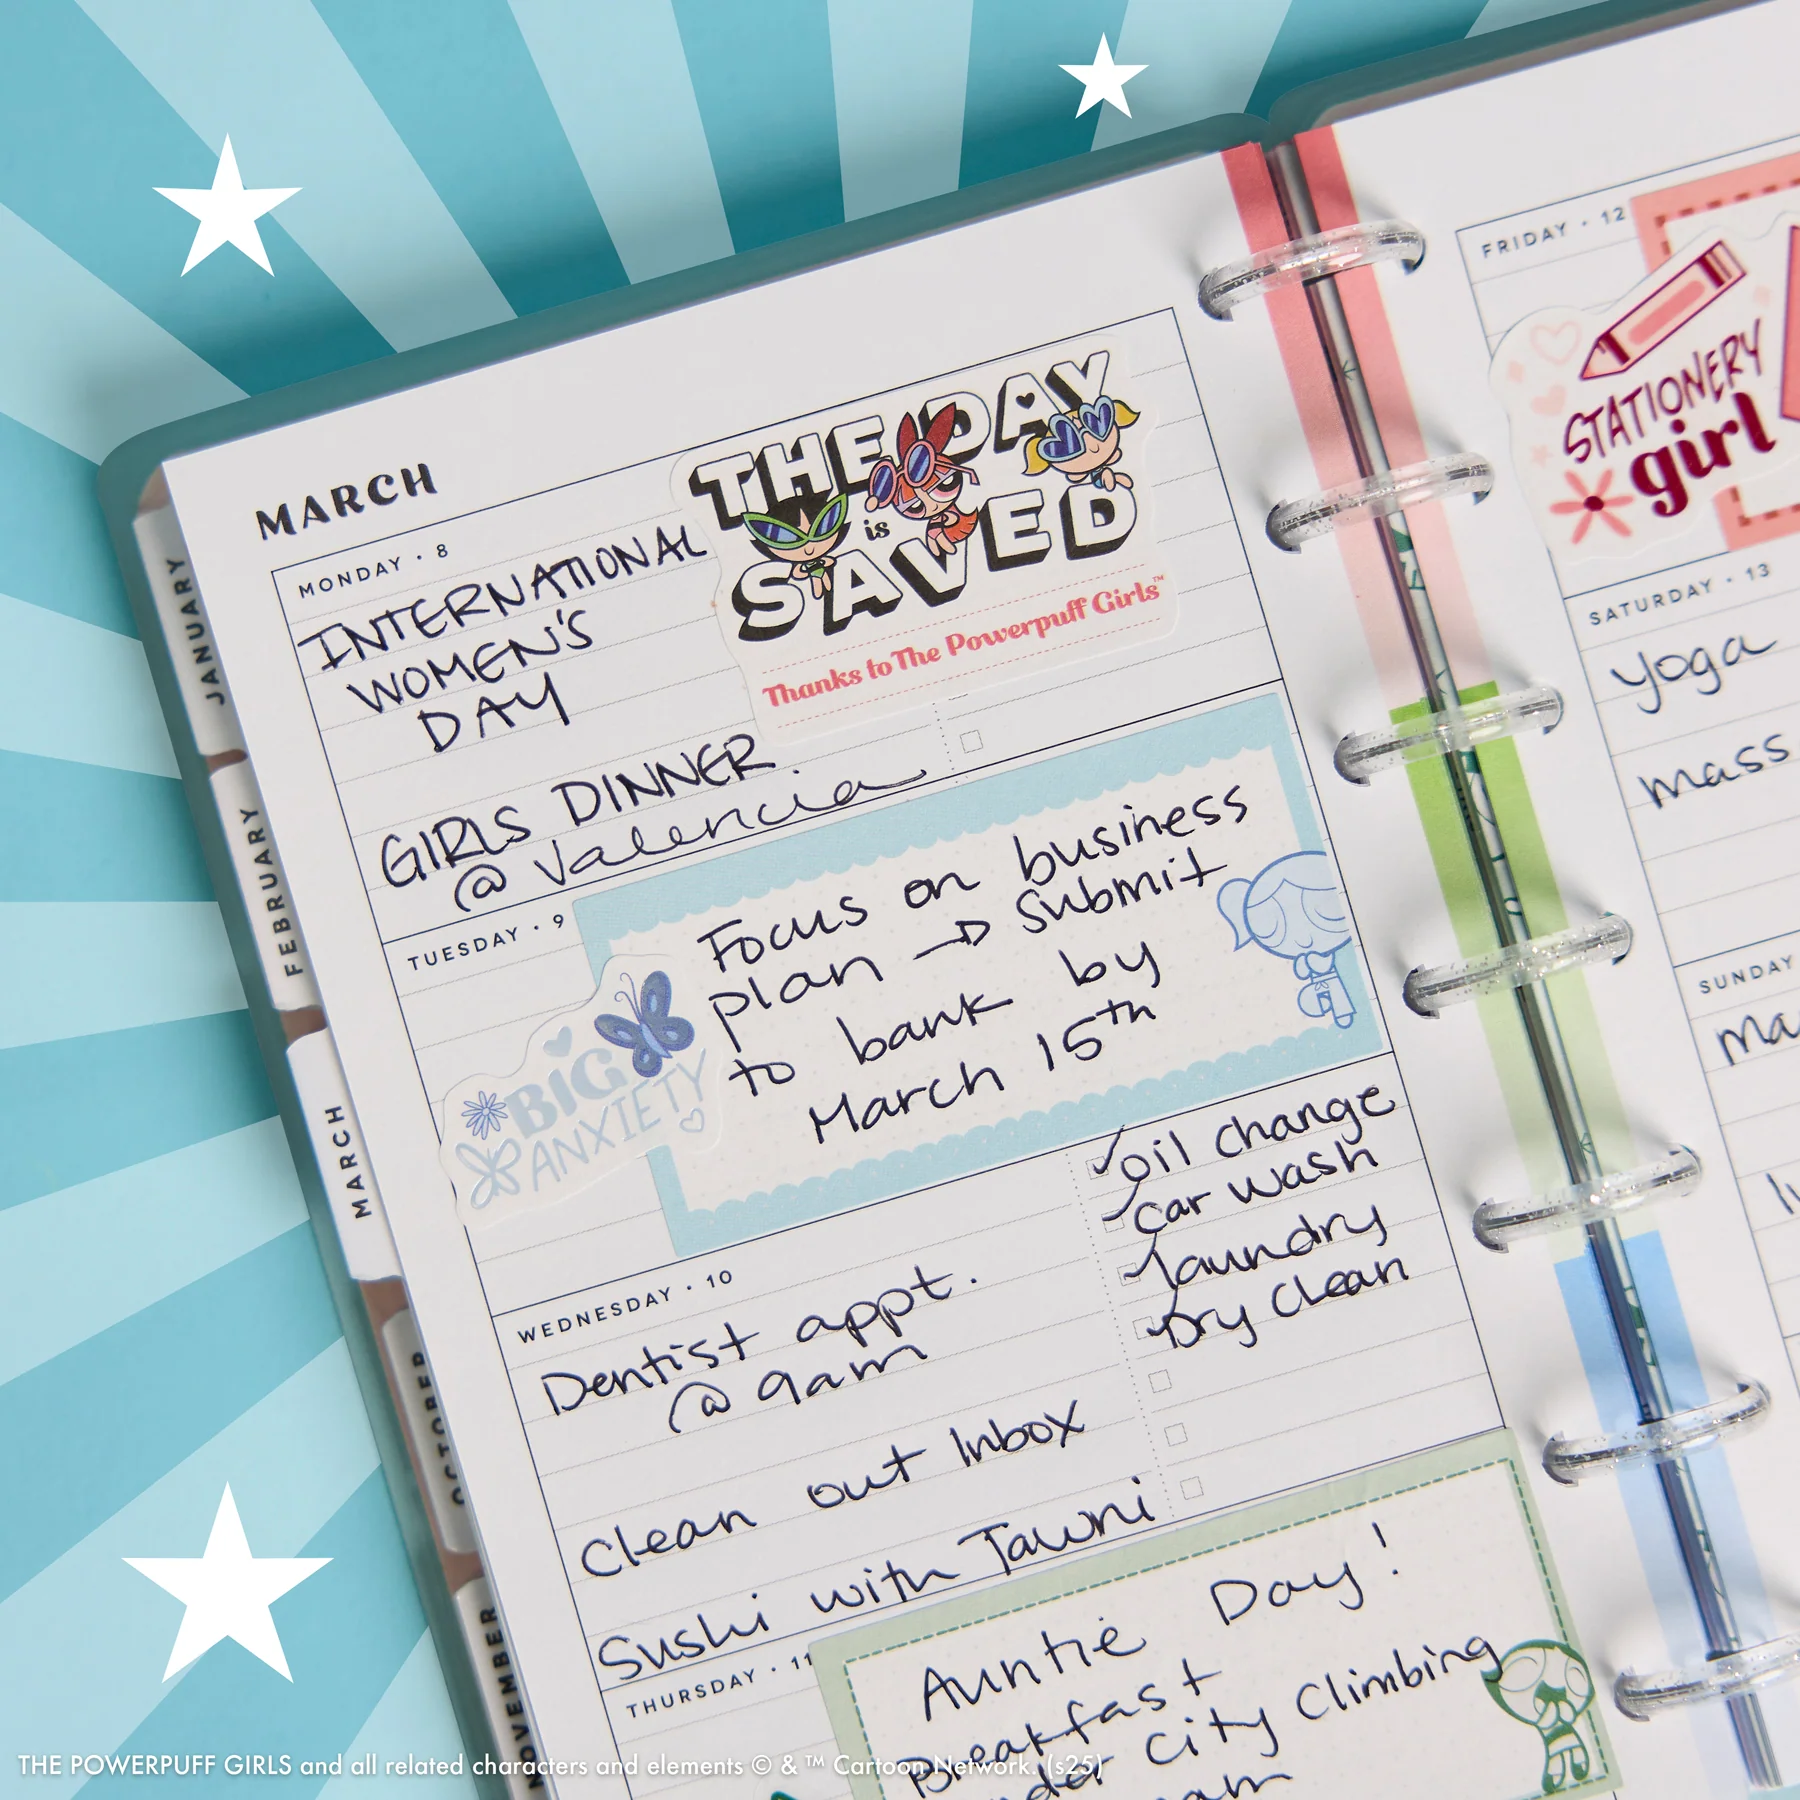 MARCH
MONDAY • 8
INTERNATIONAL
WOMEN'S
DAY
GIRLS DINNER
@ Valencia
THE DAY
is
SAVED
Thanks to The Powerpuff Girls™
TUESDAY • 9
BIG
ANXIETY
Focus on business
plan → Submit
to bank by
March 15th
WEDNESDAY • 10
Dentist appt.
@ 9am
Clean out Inbox
Sushi with Tawni
oil change
car wash
laundry
Dry Clean
THURSDAY • 11
Auntie Day!
Breakfast
City Climbing
FRIDAY • 12
STATIONERY
girl
SATURDAY • 13
yoga
mass
SUNDAY
JANUARY
FEBRUARY
MARCH
OCTOBER
NOVEMBER
THE POWERPUFF GIRLS and all related characters and elements © & ™ Cartoon Network. (s25)